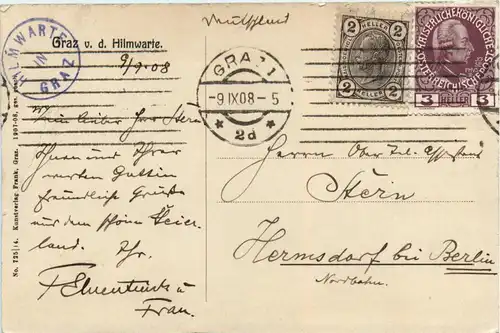 Deutschland
Graz v. d. Hilmwarte.
HILMWARTE
IN
GRAZ
9/9.08
GRAZ 1
-9.IX.08-5
* 2d *
2 HELLER 2
2 2
KAISERLICHE KÖNIGLICHE
ÖSTERREICHISCHE POST
3 HELLER 3
Mein lieber Herr Stern
Ihnen und Ihrer
werten Gattin
freundliche Grüße
aus dem schönen Steier-
land. Ihr.
u
Frau.
Herrn Ober Tel.
Stern
Hermsdorf bei Berlin
Nordbahn.
No. 725/14. Kunstverlag Frank, Graz. 1907-08.